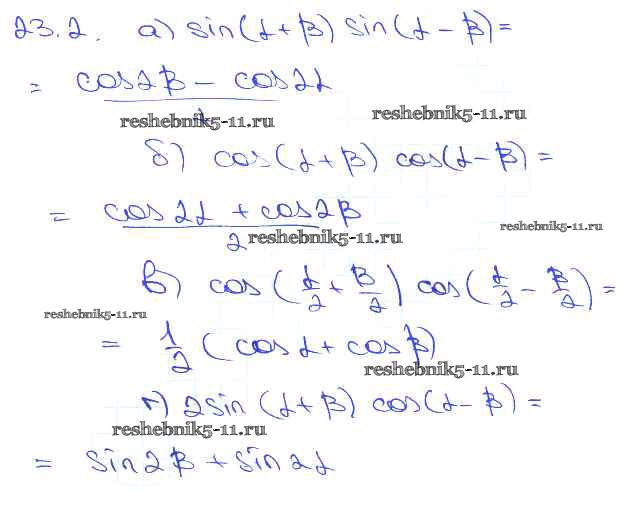 23.2. а) sin(α+β) sin(α-β)=
= cos2β - cos2α
reshebnik5-11.ru reshebnik5-11.ru
б) cos(α+β) cos(α-β)=
= cos2α + cos2β
2
reshebnik5-11.ru reshebnik5-11.ru
в) cos(α/2 + β/2) cos(α/2 - β/2)=
reshebnik5-11.ru
= 1/2 (cosα + cosβ)
reshebnik5-11.ru
г) 2sin(α+β) cos(α-β)=
reshebnik5-11.ru
= sin2β + sin2α